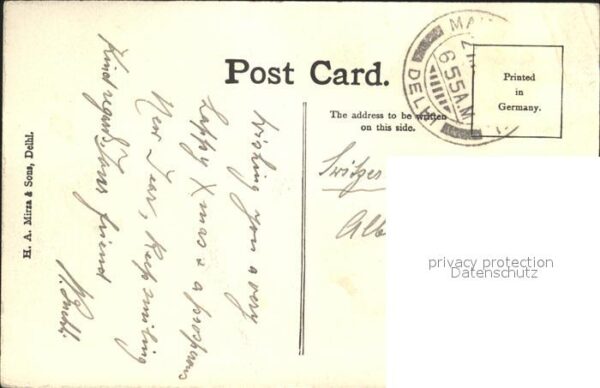 Post Card.
H. A. Mirza & Sons, Delhi.
Wishing you a very
happy Xmas & a prosperous
New Year, Keep smiling
Kind regards, Your friend
The address to be written
on this side.
DELHI
6 55 A.M
Printed
in
Germany.
privacy protection
Datenschutz